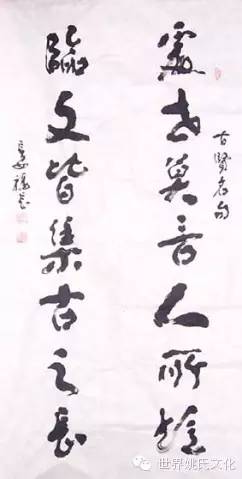 處世莫言人所短
古賢名句
臨文皆集古之長
世界姚氏文化